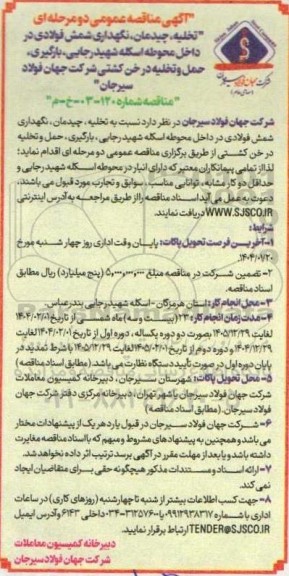 "آگهی مناقصه عمومی دو مرحله ای
"تخلیه، چیدمان، نگهداری شمش فولادی در
داخل محوطه اسکله شهید رجایی، بارگیری،
حمل و تخلیه در خن کشتی شرکت جهان فولاد
سیرجان"
"مناقصه شماره ۱۲۰-۰۳-خ-م"
شرکت جهان فولاد سیرجان
شرکت جهان فولاد سیرجان در نظر دارد نسبت به تخلیه، چیدمان، نگهداری
شمش فولادی در داخل محوطه اسکله شهید رجایی، بارگیری، حمل و تخلیه
در خن کشتی از طریق برگزاری مناقصه عمومی دو مرحله ای اقدام نماید؛
لذا از تمامی پیمانکاران معتبر که دارای انبار در محوطه اسکله شهید رجایی و
حداقل دو کار مشابه، توانایی مناسب، سوابق و تجارب مورد قبول می باشند،
دعوت به عمل می آید اسناد مناقصه را از طریق مراجعه به آدرس اینترنتی
WWW.SJSCO.IR دریافت نمایند.
شرایط:
۱-آخرین فرصت تحویل پاکات: پایان وقت اداری روز چهار شنبه مورخ
۱۴۰۴/۰۱/۲۰.
۲- تضمین شرکت در مناقصه مبلغ ۵،۰۰۰،۰۰۰،۰۰۰ (پنج میلیارد) ریال مطابق
اسناد مناقصه.
۳-محل انجام کار: استان هرمزگان - اسکله شهید رجایی بندرعباس.
۴-مدت زمان انجام کار: ۲۳ (بیست و سه) ماه شمسی از تاریخ ۱۴۰۴/۰۲/۰۱
لغایت ۱۴۰۵/۱۲/۲۹ بصورت دو دوره یکساله، دوره اول از تاریخ ۱۴۰۴/۰۲/۰۱ لغایت
۱۴۰۴/۱۲/۲۹ و دوره دوم از تاریخ ۱۴۰۵/۰۱/۰۱ لغایت ۱۴۰۵/۱۲/۲۹ با شرط تمدید در
پایان دوره اول در صورت تأیید دستگاه نظارت می باشد. (مطابق اسناد مناقصه)
۵- محل تحویل پاکات: شهرستان سیرجان، دبیرخانه کمیسیون معاملات
شرکت جهان فولاد سیرجان یا شهر تهران، دبیرخانه مرکزی دفتر شرکت جهان
فولاد سیرجان. (مطابق اسناد مناقصه)
۶- شرکت جهان فولاد سیرجان در قبول یا رد هر یک از پیشنهادات مختار
می باشد و همچنین به پیشنهادهای مشروط و مبهم که با اسناد مناقصه مغایرت
داشته باشد و یا بعد از مهلت مقرر در آگهی برسد ترتیب اثر داده نخواهد شد.
۷-ارائه اسناد و مستندات مذکور هیچگونه حقی برای متقاضیان ایجاد
نمی کند.
۸-جهت کسب اطلاعات بیشتر از شنبه تا چهارشنبه (روزهای کاری) در ساعات
اداری با شماره ۰۹۹۱۲۹۳۸۳۱۷ یا ۳۱۲۵۷۶۰۰-۰۳۴ داخلی ۶۱۴۳ و آدرس ایمیل
TENDER@SJSCO.IR ارتباط برقرار نمایید.
دبیرخانه کمیسیون معاملات
شرکت جهان فولاد سیرجان